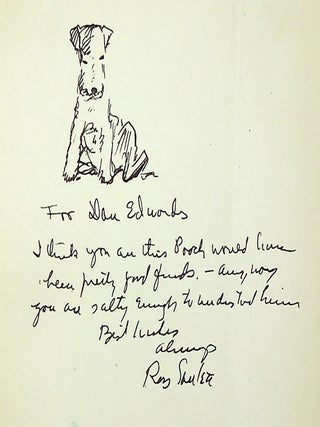 For Dan Edwards
I think you and this Pooch would have
been pretty good friends. – anyway
you are salty enough to understand him
Best wishes
always